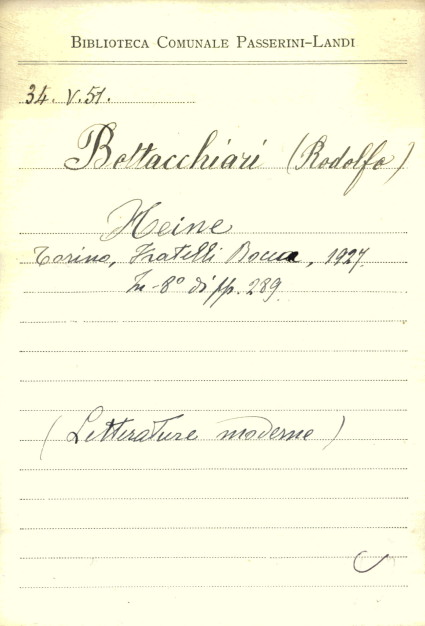 BIBLIOTECA COMUNALE PASSERINI-LANDI
34. V. 51.
Bottacchiari (Rodolfo)
Heine
Torino, Fratelli Bocca, 1927.
In-8° di pp. 289.
(Letterature moderne)